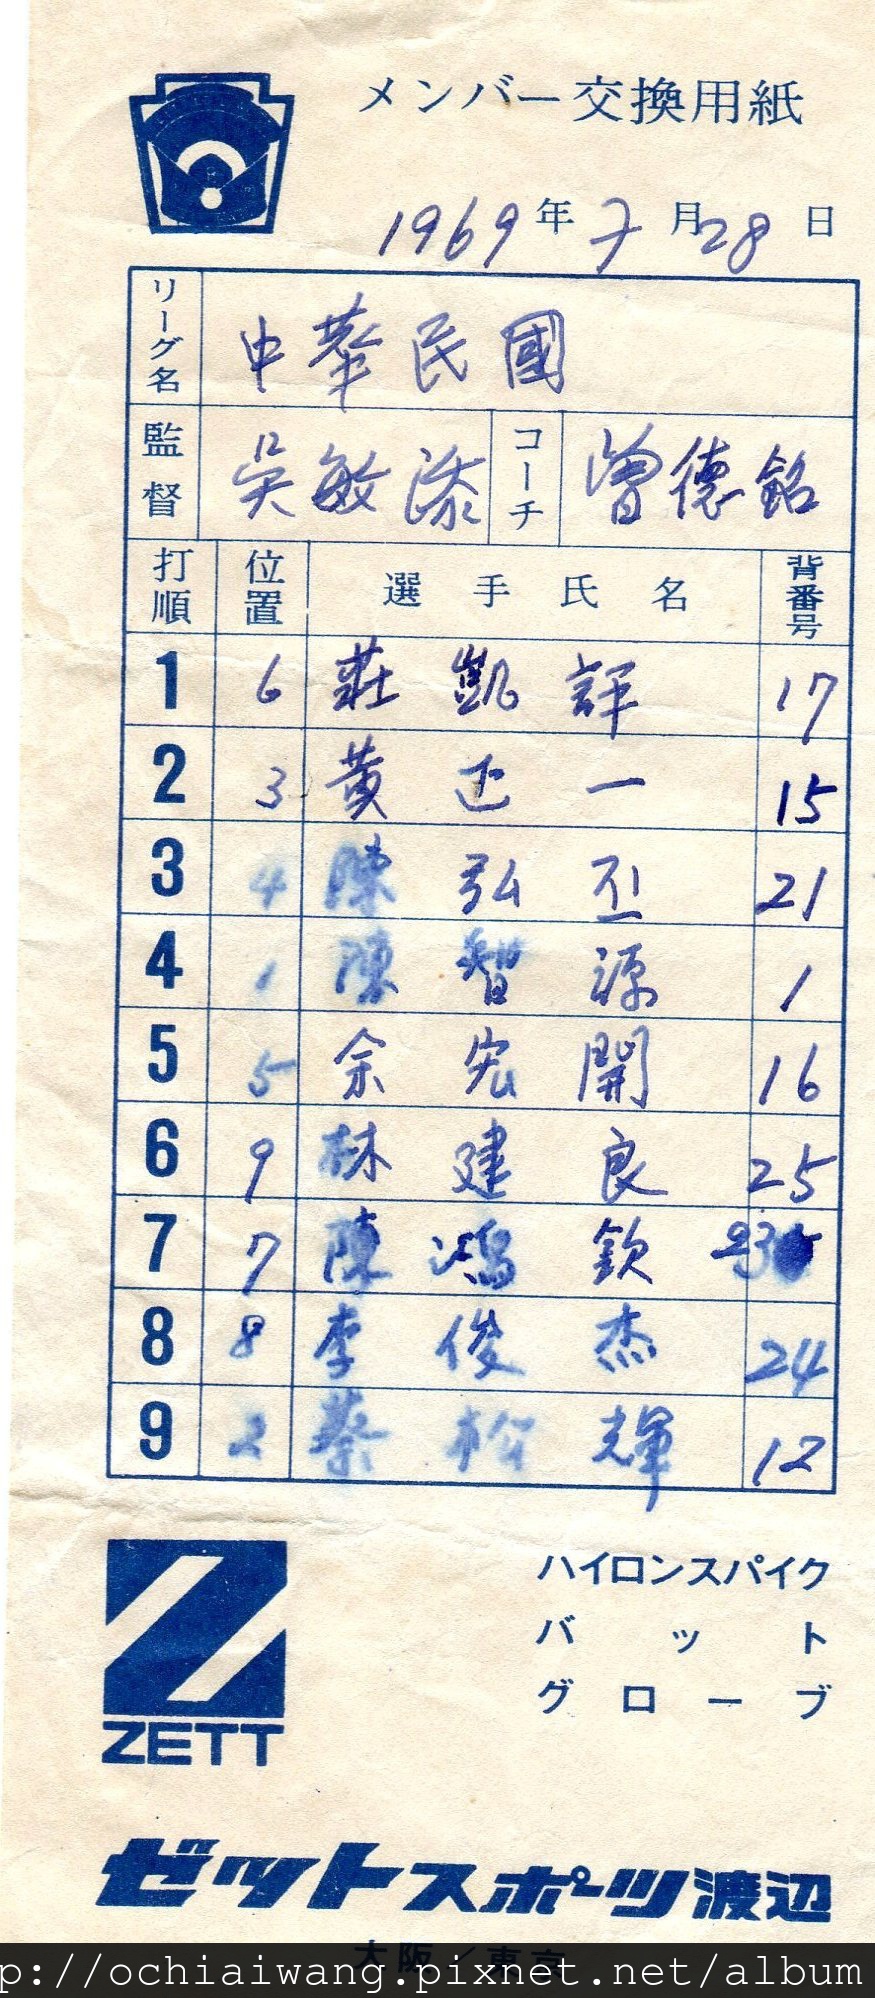 メンバー交換用紙
1969年7月28日
リーグ名 中華民國
監督 吳敏添 コーチ 曾德銘
打順 位置 選手氏名 背番号
1 6 莊凱評 17
2 3 黃正一 15
3 4 陳弘丕 21
4 1 陳智源 1
5 5 余宏開 16
6 9 林建良 25
7 7 陳鴻欽
8 8 李俊杰 24
9 2 蔡松輝 12
ハイロンスパイク
バット
グローブ
ZETT
ゼットスポーツ渡辺
大阪/東京
p://ochiaiwang.pixnet.net/album